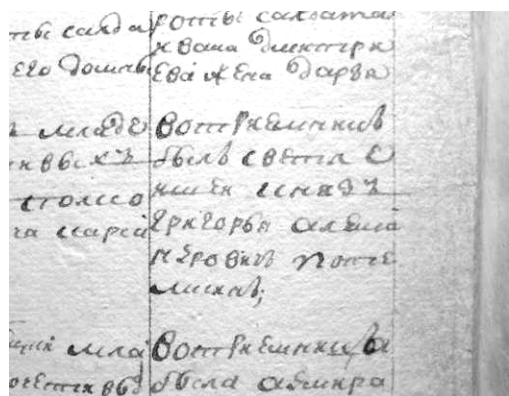 ты салда
его домъ
младе
столмо
га марїи
мла
роты салдата
ивана дмитри
ева жена дарья
воспрїемникъ
былъ светле
ишей князь
григорьи алеѯа
ндровичъ поте
мкинъ;
воспрїемника
была адмира